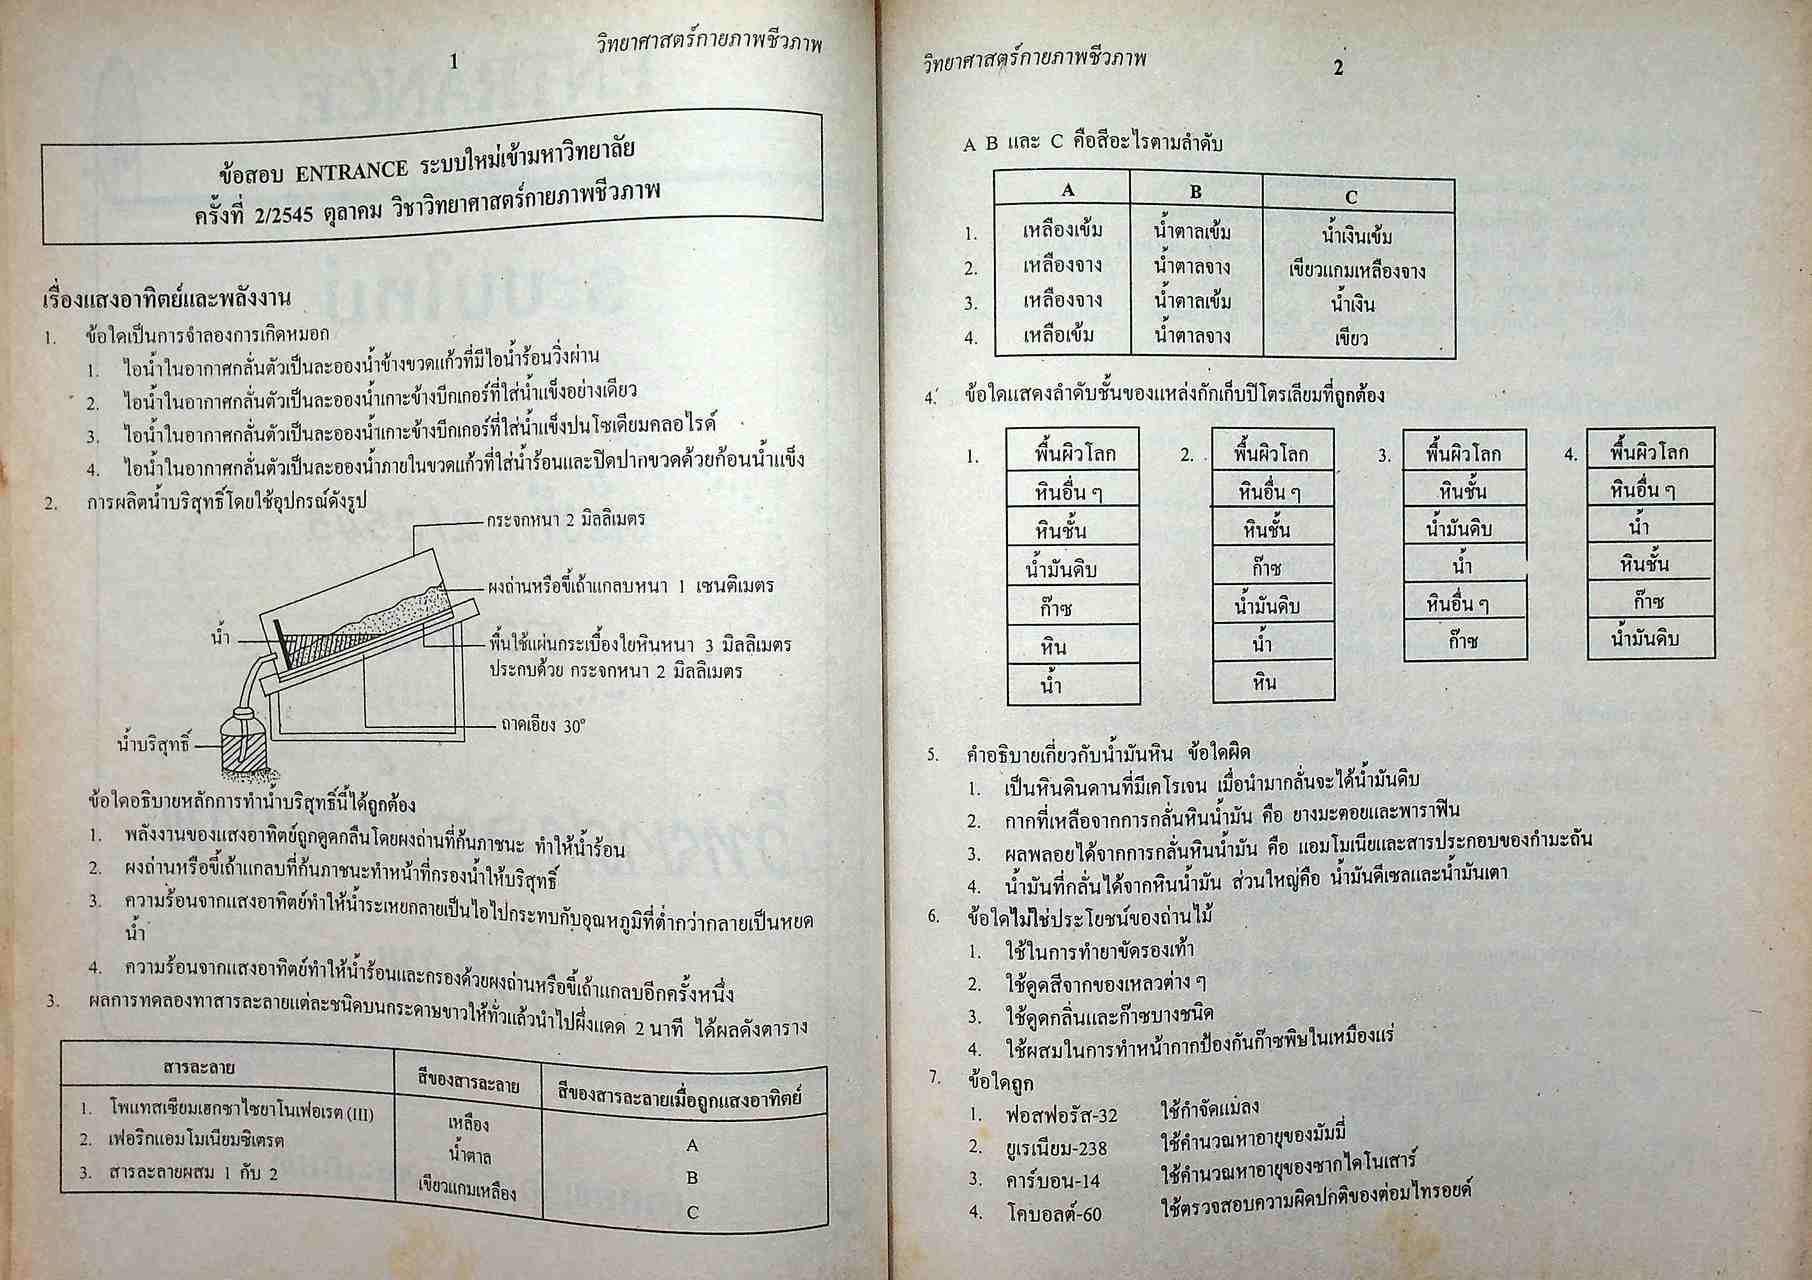 1
วิทยาศาสตร์กายภาพชีวภาพ
ข้อสอบ ENTRANCE ระบบใหม่เข้ามหาวิทยาลัย
ครั้งที่ 2/2545 ตุลาคม วิชาวิทยาศาสตร์กายภาพชีวภาพ
เรื่องแสงอาทิตย์และพลังงาน
1. ข้อใดเป็นการจำลองการเกิดหมอก
1. ไอน้ำในอากาศกลั่นตัวเป็นละอองน้ำข้างขวดแก้วที่มีไอน้ำร้อนวิ่งผ่าน
2. ไอน้ำในอากาศกลั่นตัวเป็นละอองน้ำเกาะข้างบีกเกอร์ที่ใส่น้ำแข็งอย่างเดียว
3. ไอน้ำในอากาศกลั่นตัวเป็นละอองน้ำเกาะข้างบีกเกอร์ที่ใส่น้ำแข็งปนโซเดียมคลอไรด์
4. ไอน้ำในอากาศกลั่นตัวเป็นละอองน้ำภายในขวดแก้วที่ใส่น้ำร้อนและปิดปากขวดด้วยก้อนน้ำแข็ง
2. การผลิตน้ำบริสุทธิ์โดยใช้อุปกรณ์ดังรูป
กระจกหนา 2 มิลลิเมตร
ผงถ่านหรือขี้เถ้าแกลบหนา 1 เซนติเมตร
น้ำ
พื้นใช้แผ่นกระเบื้องใยหินหนา 3 มิลลิเมตร
ประกบด้วย กระจกหนา 2 มิลลิเมตร
ถาดเอียง 30°
น้ำบริสุทธิ์
ข้อใดอธิบายหลักการทำน้ำบริสุทธิ์นี้ได้ถูกต้อง
1. พลังงานของแสงอาทิตย์ถูกดูดกลืนโดยผงถ่านที่ก้นภาชนะ ทำให้น้ำร้อน
2. ผงถ่านหรือขี้เถ้าแกลบที่ก้นภาชนะทำหน้าที่กรองน้ำให้บริสุทธิ์
3. ความร้อนจากแสงอาทิตย์ทำให้น้ำระเหยกลายเป็นไอไปกระทบกับอุณหภูมิที่ต่ำกว่ากลายเป็นหยด
น้ำ
4. ความร้อนจากแสงอาทิตย์ทำให้น้ำร้อนและกรองด้วยผงถ่านหรือขี้เถ้าแกลบอีกครั้งหนึ่ง
3. ผลการทดลองทาสารละลายแต่ละชนิดบนกระดาษขาวให้ทั่วแล้วนำไปผึ่งแดด 2 นาที ได้ผลดังตาราง
สารละลาย สีของสารละลาย สีของสารละลายเมื่อถูกแสงอาทิตย์
1. โพแทสเซียมเฮกซาไซยาโนเฟอเรต (III) เหลือง A
2. เฟอริกแอมโมเนียมซิเตรต น้ำตาล B
3. สารละลายผสม 1 กับ 2 เขียวแกมเหลือง C
วิทยาศาสตร์กายภาพชีวภาพ
2
A B และ C คือสีอะไรตามลำดับ
A B C
1. เหลืองเข้ม น้ำตาลเข้ม น้ำเงินเข้ม
2. เหลืองจาง น้ำตาลจาง เขียวแกมเหลืองจาง
3. เหลืองจาง น้ำตาลเข้ม น้ำเงิน
4. เหลือเข้ม น้ำตาลจาง เขียว
4. ข้อใดแสดงลำดับชั้นของแหล่งกักเก็บปิโตรเลียมที่ถูกต้อง
1. พื้นผิวโลก 2. พื้นผิวโลก 3. พื้นผิวโลก 4. พื้นผิวโลก
หินอื่น ๆ หินอื่น ๆ หินชั้น หินอื่น ๆ
หินชั้น หินชั้น น้ำมันดิบ น้ำ
น้ำมันดิบ ก๊าซ น้ำ หินชั้น
ก๊าซ น้ำมันดิบ หินอื่น ๆ ก๊าซ
หิน น้ำ ก๊าซ น้ำมันดิบ
น้ำ หิน
5. คำอธิบายเกี่ยวกับน้ำมันหิน ข้อใดผิด
1. เป็นหินดินดานที่มีเคโรเจน เมื่อนำมากลั่นจะได้น้ำมันดิบ
2. กากที่เหลือจากการกลั่นหินน้ำมัน คือ ยางมะตอยและพาราฟิน
3. ผลพลอยได้จากการกลั่นหินน้ำมัน คือ แอมโมเนียและสารประกอบของกำมะถัน
4. น้ำมันที่กลั่นได้จากหินน้ำมัน ส่วนใหญ่คือ น้ำมันดีเซลและน้ำมันเตา
6. ข้อใดไม่ใช่ประโยชน์ของถ่านไม้
1. ใช้ในการทำยาขัดรองเท้า
2. ใช้ดูดสีจากของเหลวต่าง ๆ
3. ใช้ดูดกลิ่นและก๊าซบางชนิด
4. ใช้ผสมในการทำหน้ากากป้องกันก๊าซพิษในเหมืองแร่
7. ข้อใดถูก
1. ฟอสฟอรัส-32 ใช้กำจัดแมลง
2. ยูเรเนียม-238 ใช้คำนวณหาอายุของมัมมี่
3. คาร์บอน-14 ใช้คำนวณหาอายุของซากไดโนเสาร์
4. โคบอลต์-60 ใช้ตรวจสอบความผิดปกติของต่อมไทรอยด์